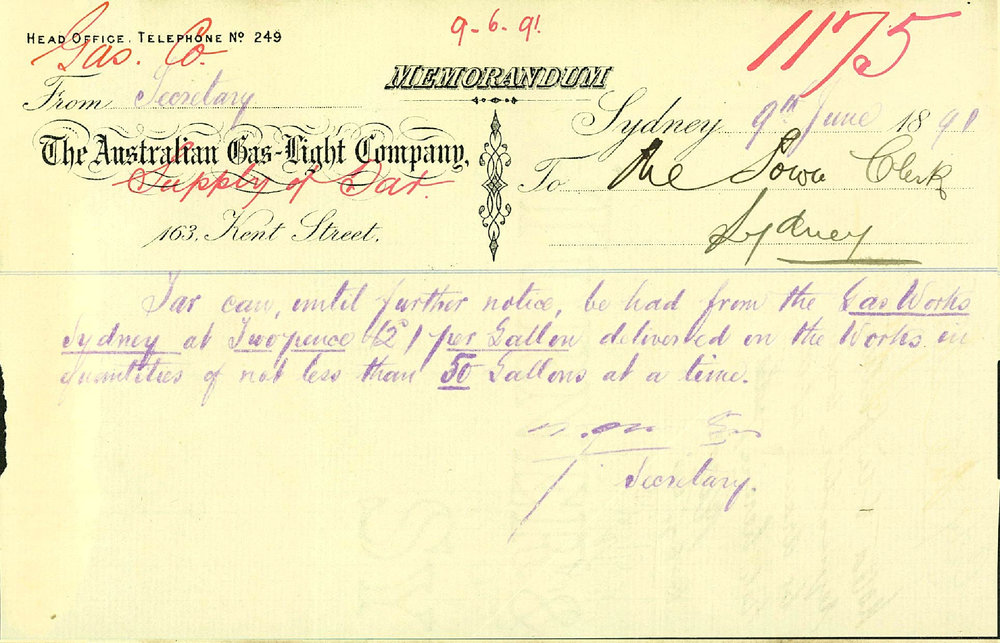 HEAD OFFICE. TELEPHONE No 249
9-6.91
1175
Gas. Co.
MEMORANDUM
From Secretary
Sydney 9th June 1891
The Australian Gas-Light Company,
Supply of Tar.
To the Town Clerk
163, Kent Street.
Sydney
Tar can, until further notice, be had from the Gas Works
Sydney at Twopence (2d) per Gallon delivered on the Works in
quantities of not less than 50 Gallons at a time.
Secretary.